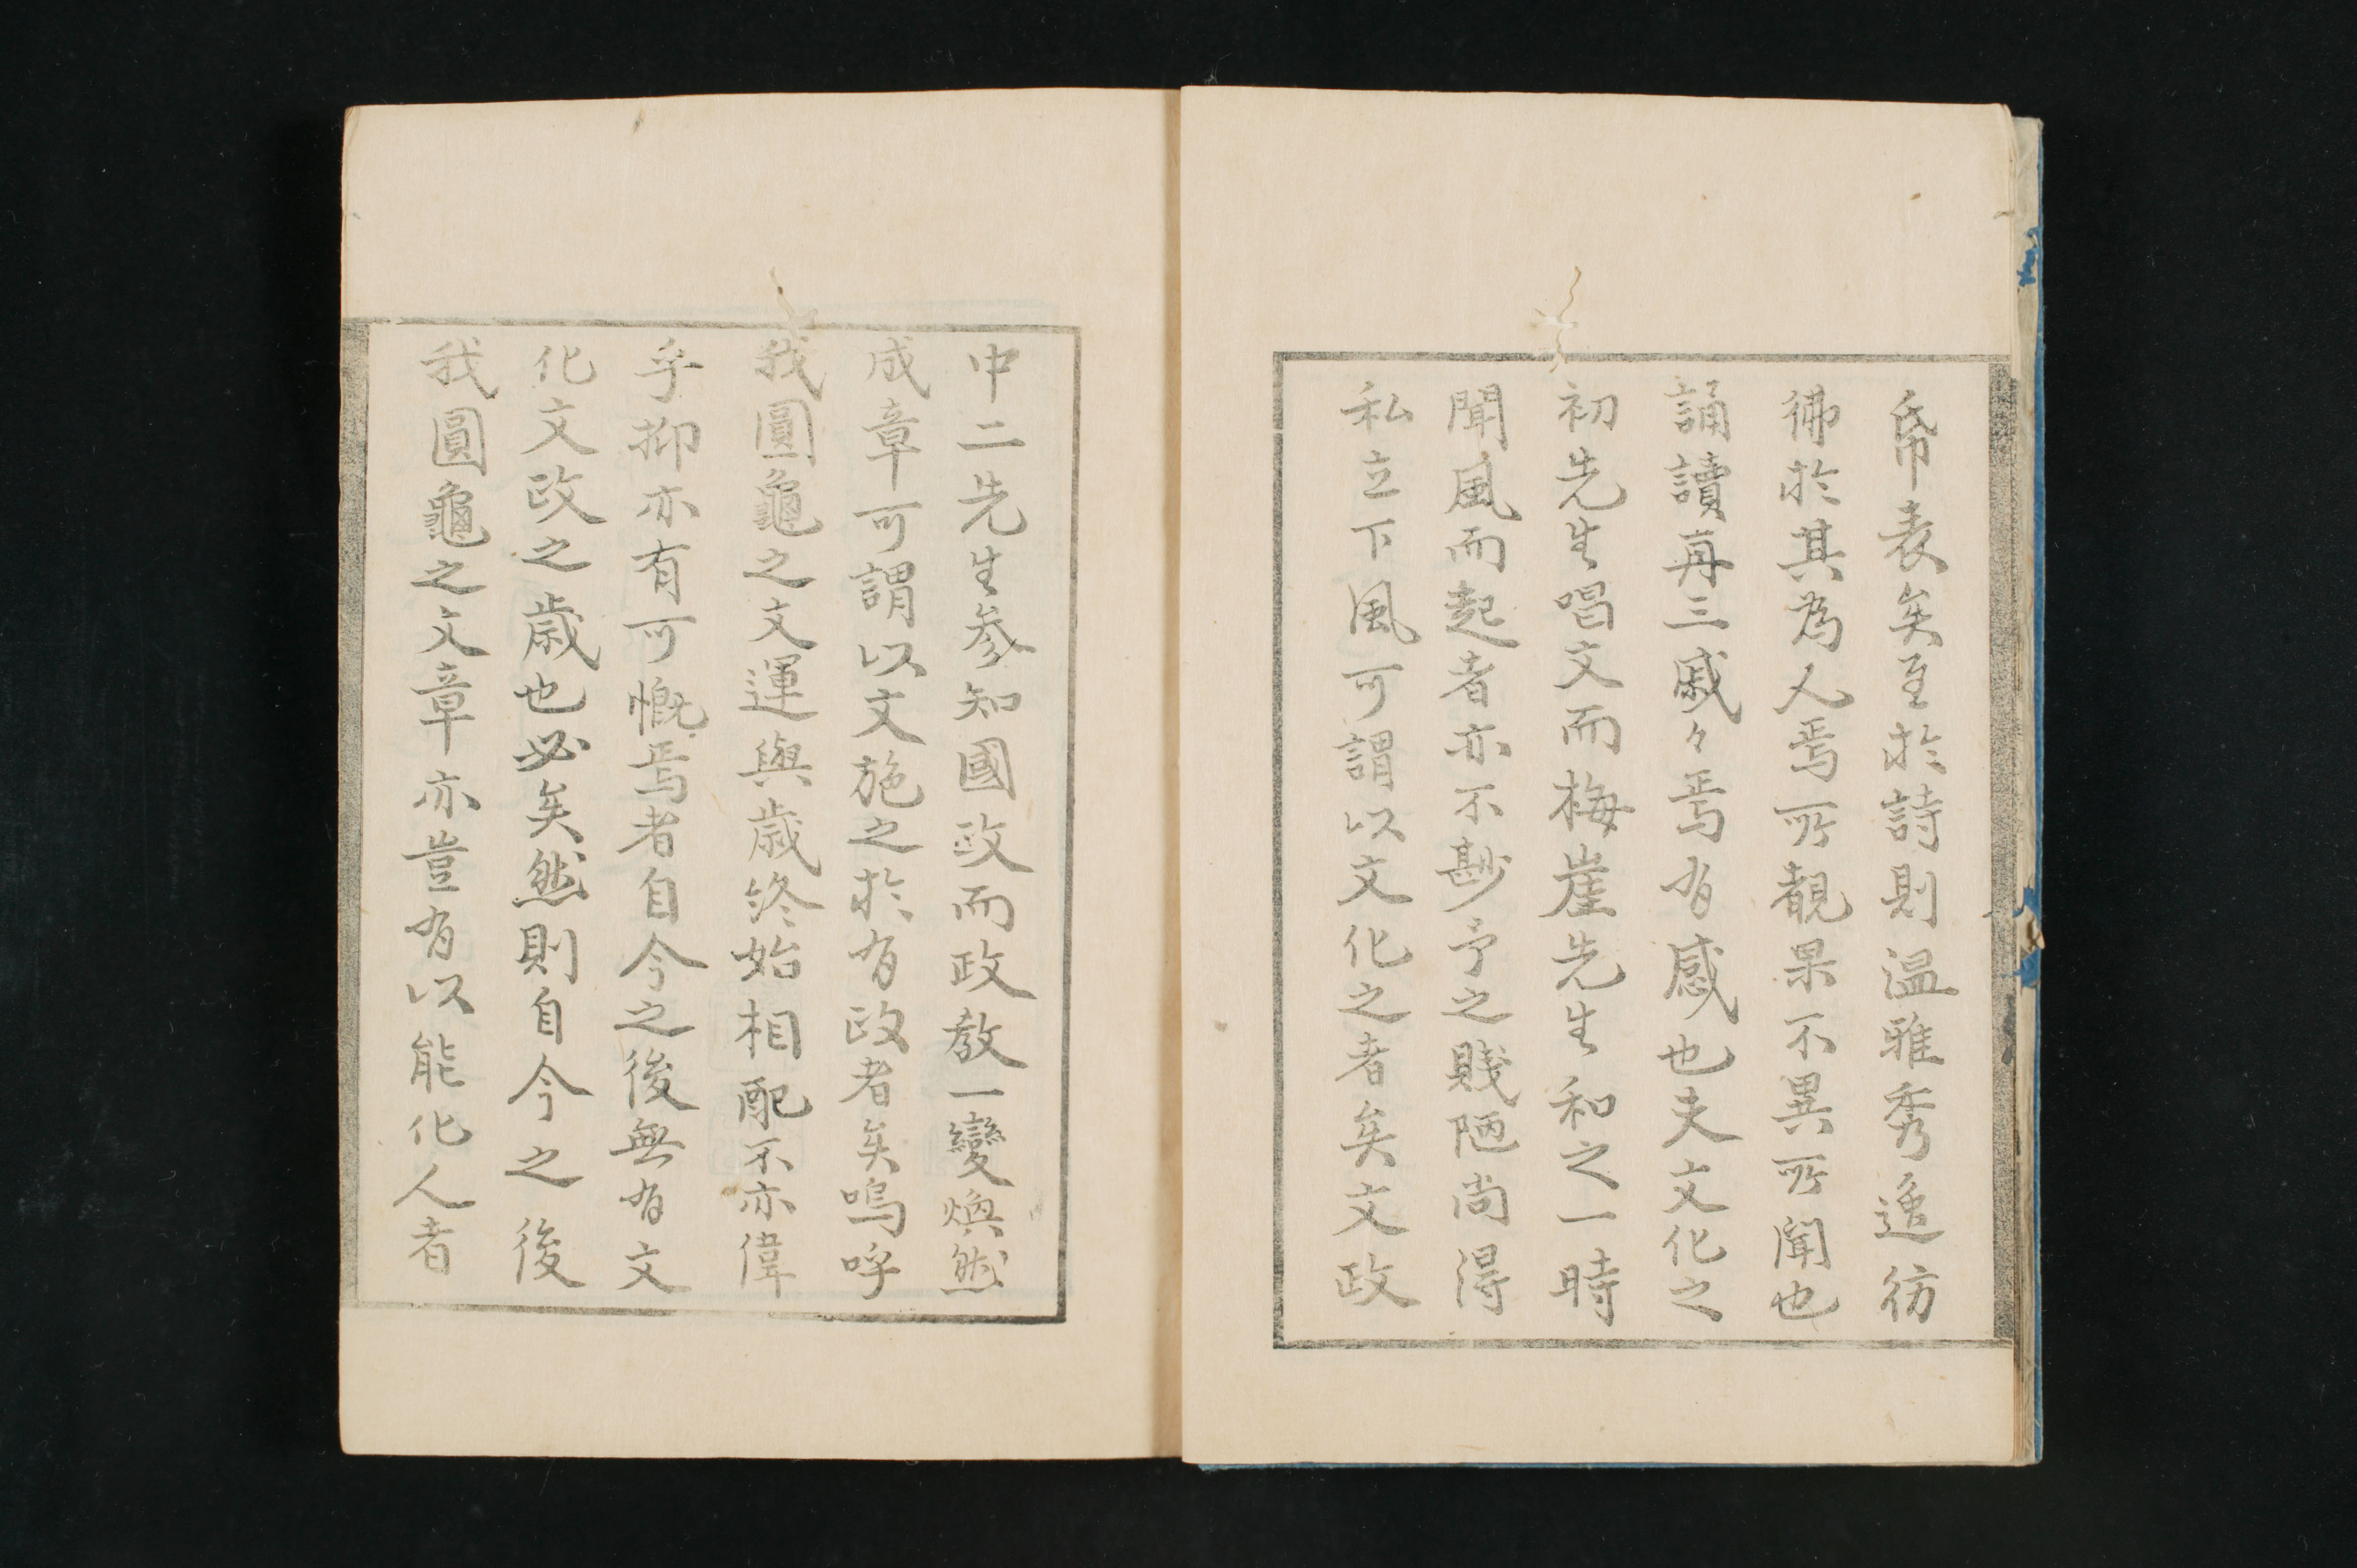 帋表矣至於詩則温雅秀逸彷
彿於其為人焉所覩果不異所聞也
誦讀再三感々焉有感也夫文化之
初先生唱文而梅崖先生和之一時
聞風而起者亦不尠予之賤陋尚得
私立下風可謂以文化之者矣文政
中二先生参知國政而政教一變煥然
成章可謂以文施之於有政者矣嗚呼
我圓龜之文運與歳終始相配不亦偉
乎抑亦有可慨焉者自今之後無有文
化文政之歳也必矣然則自今之後
我圓龜之文章亦豈有以能化人者